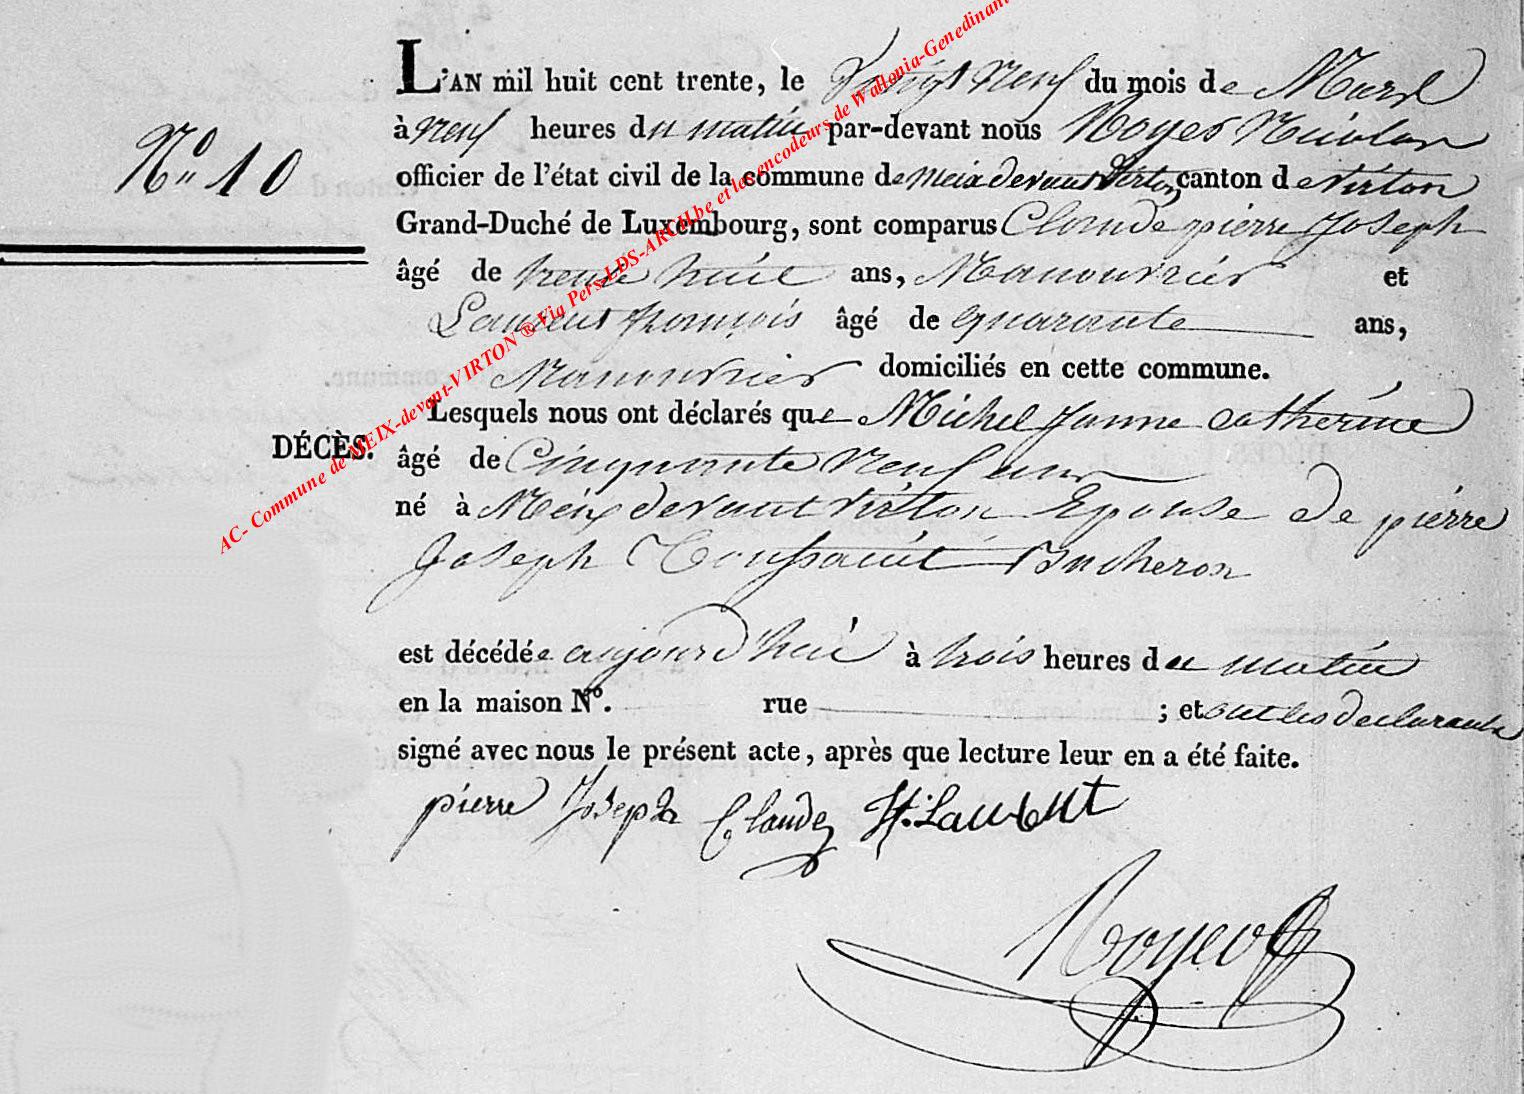 L'AN mil huit cent trente, le Vingt neuf du mois de Mars
à neuf heures du matin par-devant nous Noyer Nicolas
N° 10
officier de l'état civil de la commune de meix devant Virton canton de virton
Grand-Duché de Luxembourg, sont comparus Claude pierre Joseph
âgé de trente huit ans, Manouvrier et
Laurent françois âgé de quarante ans,
Manouvrier domiciliés en cette commune.
Lesquels nous ont déclarés que Michel Janne catherine
DÉCÈS.
âgé de Cinquante neuf ans
né à Meix devant virton Epouse de pierre
Joseph Toussaint Bucheron
est décédée aujourd'hui à trois heures du matin
en la maison N°. rue ; et ont les declarants
signé avec nous le présent acte, après que lecture leur en a été faite.
pierre Joseph Claude H. Laurent
AC- Commune de MEIX-devant-VIRTON ® Via Pers-LDS-ARCH.be et les encodeurs de Wallonia-Genedinant